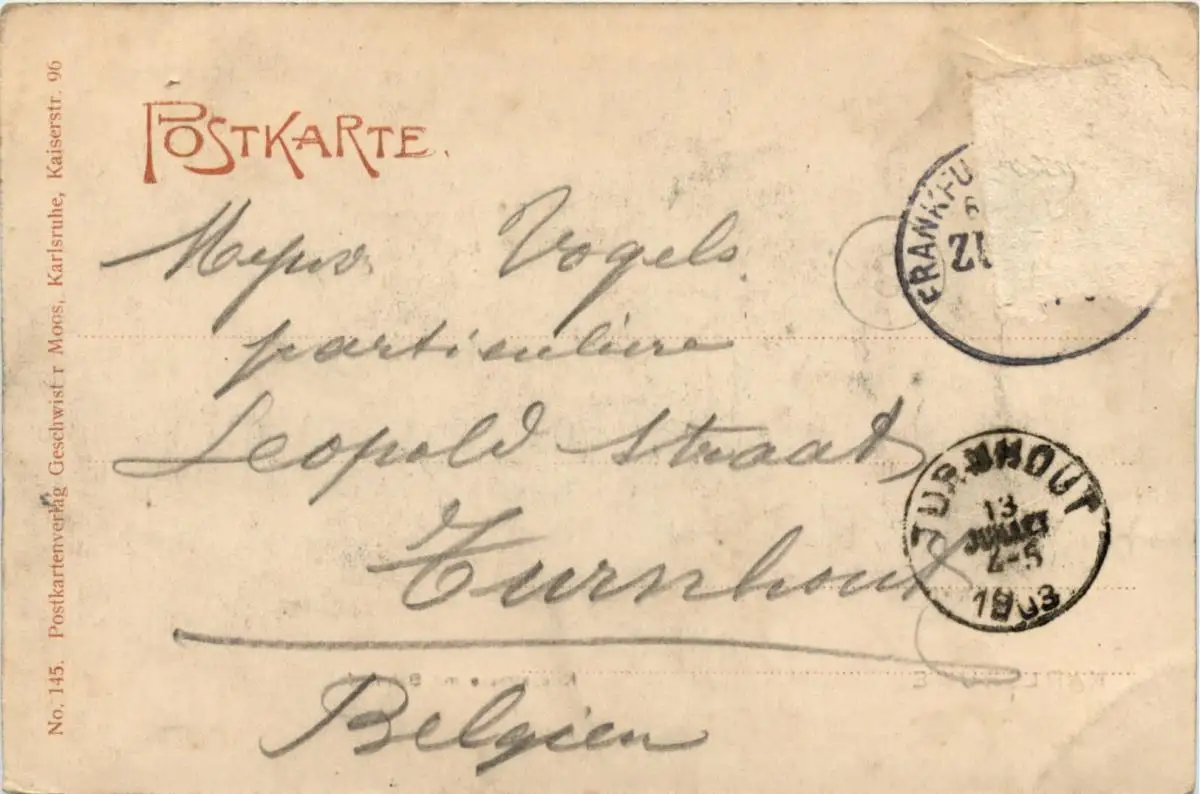 No. 145. Postkartenverlag Geschwister Moos, Karlsruhe, Kaiserstr. 96
POSTKARTE.
Mejuv. Vogels
particuliere
Leopold straat
Turnhout
Belgien
FRANKFU
12
TURNHOUT
13
JUILLET
4-5
1903